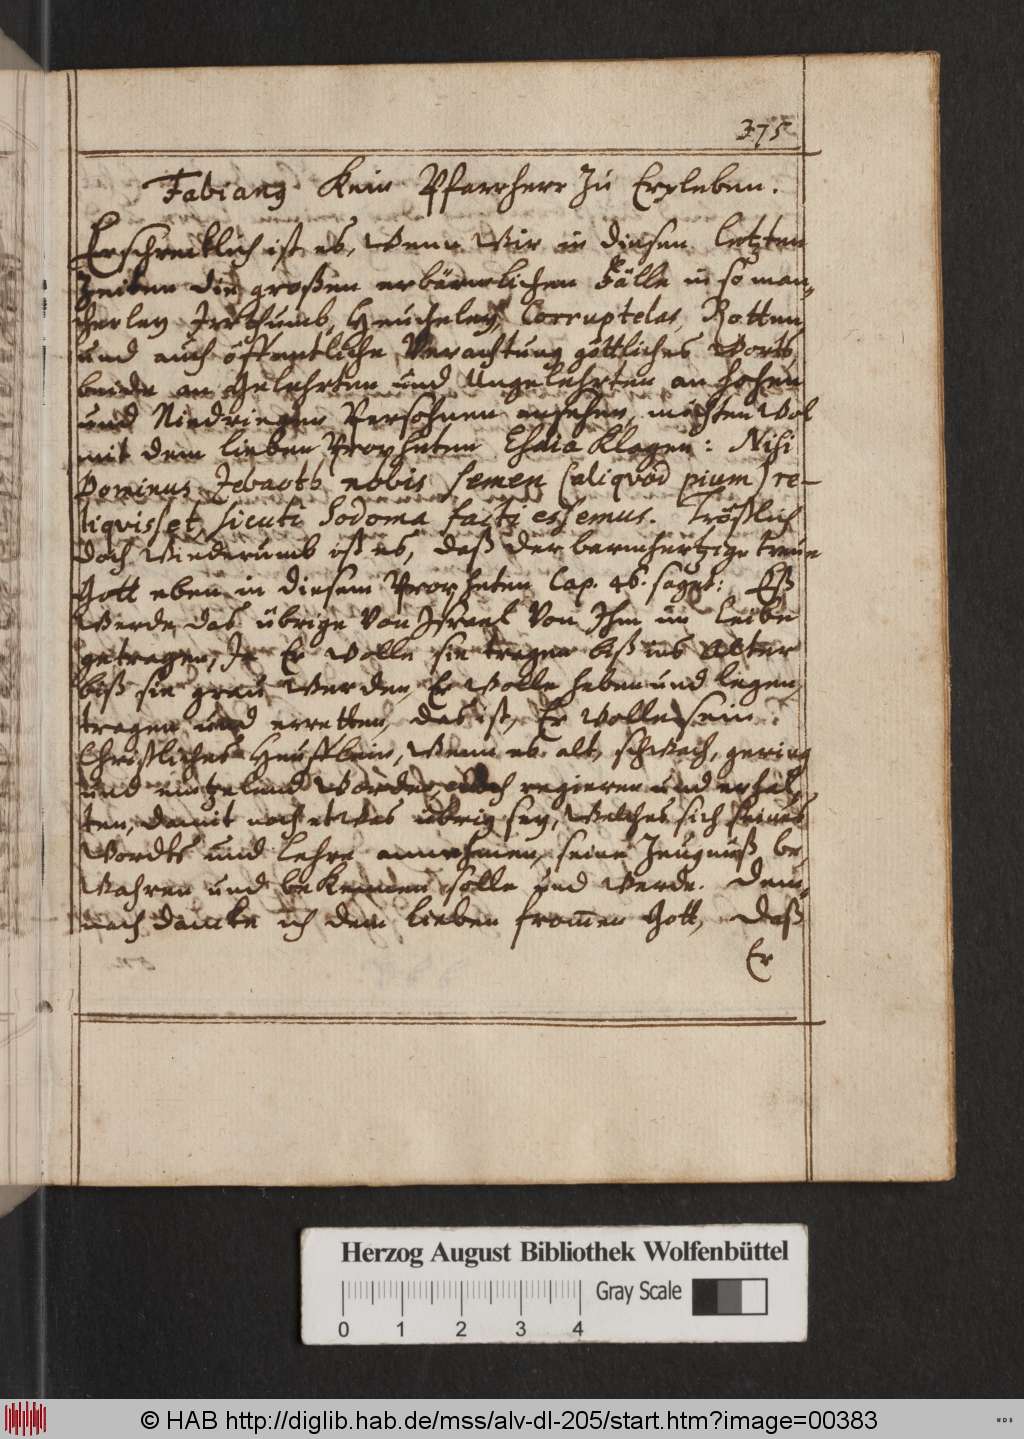 375
Fabianus Kein Pfarrherr Zu Erxleben.
Erschrecklich ist es, Wenn Wir in diesen letzten
Zeiten die großen erbärmlichen Fälle in so man-
cherley Irrthumb, Heucheley, Corruptelas, Rotten,
und auch öffentliche Verachtung göttliches Worts,
beide an Gelehrten und Ungelehrten an hohen
und Niedriegen Persohnen ansehen, möchten Wol
mit dem lieben Propheten Esaia Klagen: Nisi
Dominus Zebaoth nobis semen (aliqvod pium) re-
liqvisset, sicuti Sodoma facti essemus. Tröstlich
doch Wiederumb ist es, daß der barmhertzige treue
Gott eben in diesem Propheten Cap. 46. saget: Eß
Werde das übrige Von Israel Von Ihm im leibe
getragen, Ja Er Wolle sie tragen biß ins Alter
biß sie grau Werden, Er Wolle heben und legen,
tragen und erretten, das ist, Er Wolle sein
Christliches Heufflein, Wenn es alt, schWach, gering
und eintzelend Worden, noch regieren und erhal-
ten, damit noch etWas übrig sey, Welches sich seines
Wordts und lehre annehmen, seine Zeugnuß be-
Wahren und beKennen solle und Werde. Dem-
nach dancke ich dem lieben fromen Gott, daß
Er
Herzog August Bibliothek Wolfenbüttel
Gray Scale
0 1 2 3 4
© HAB http://diglib.hab.de/mss/alv-dl-205/start.htm?image=00383